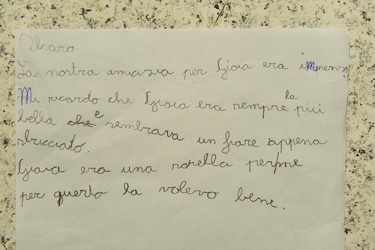 Alvaro
La nostra amicizia per Gioia era immensa.
Mi ricordo che Gioia era sempre la più
bella che e sembrava un fiore appena
sbucciato.
Gioia era una sorella per me
per questo la volevo bene.